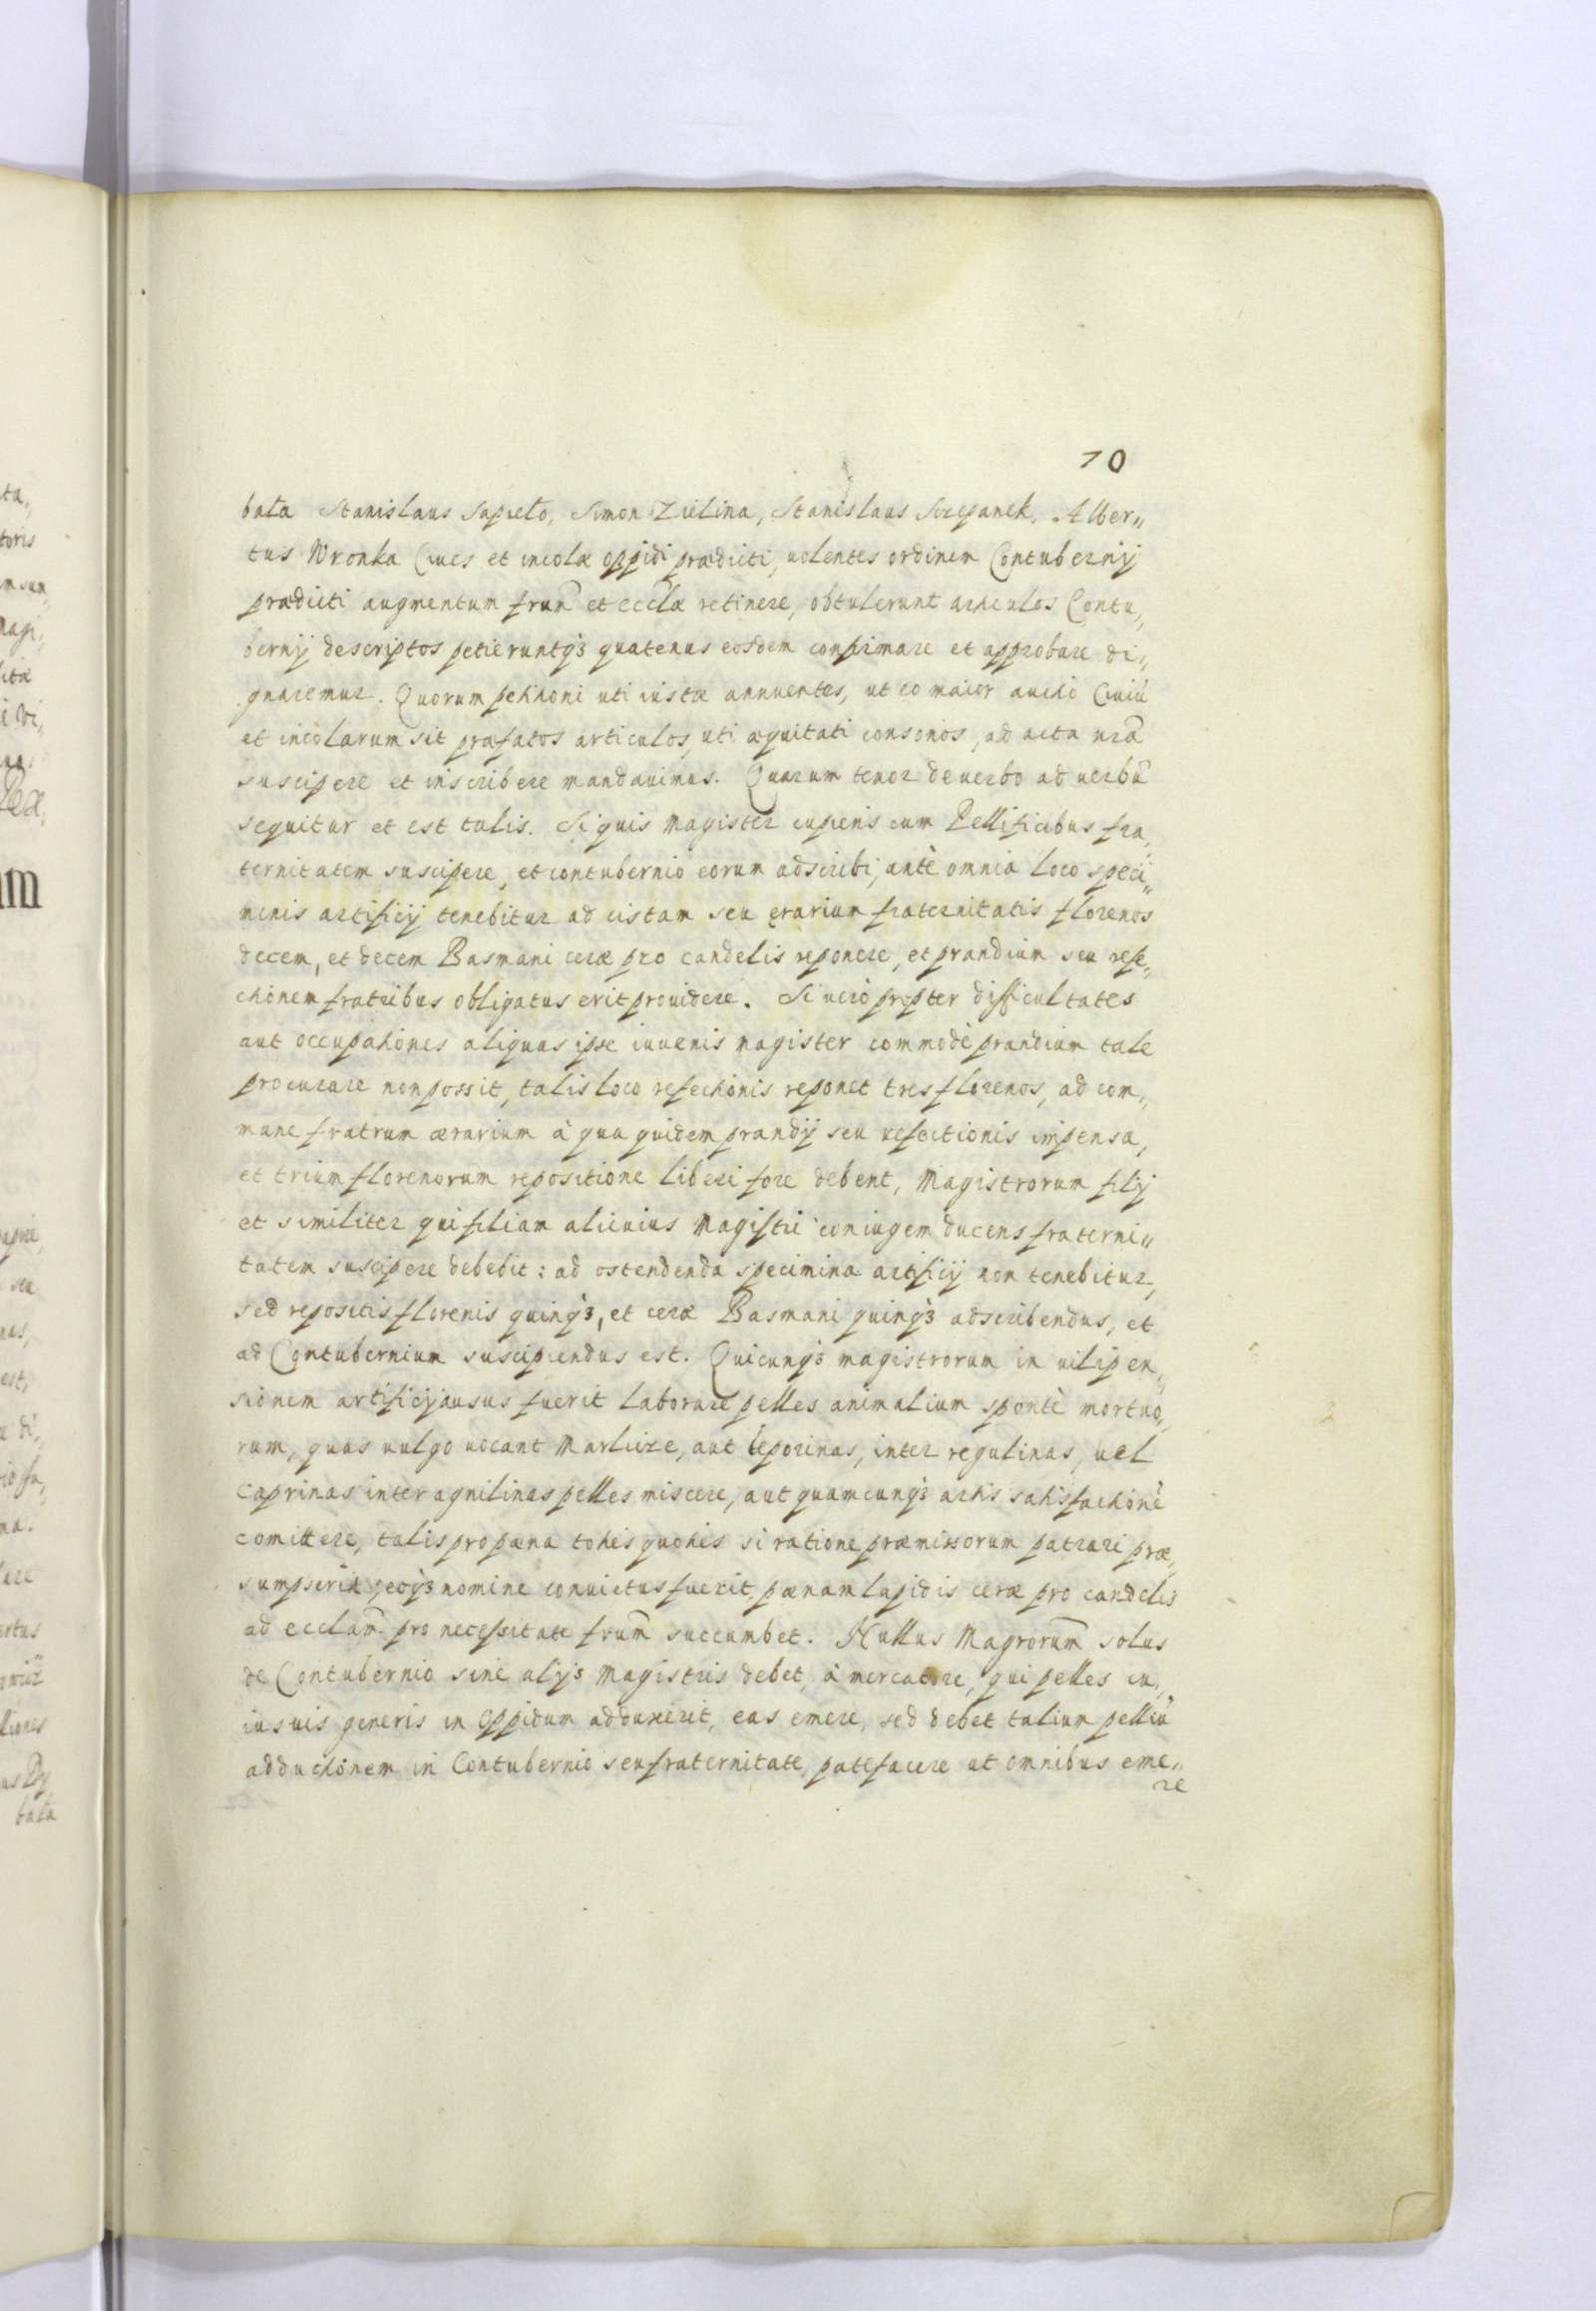 70
bata Stanislaus Sapieło, Simon Zielina, Stanislaus Szczepanek, Alber„
tus Wronka Ciues et incolæ oppidi prædicti, uolentes ordinem Contubernij
prædicti augmentum frum̃ et eccl̃æ retinere, obtulerunt articulos Contu„
bernij descriptos petieruntq3 quatenus eosdem confirmare et approbare di„
gnaremur. Quorum petitioni uti iustæ annuentes, ut eo maior auctio Ciuiũ
et incolarum sit præfatos articulos, uti æquitati consonos, ad acta nrã
suscipere et inscribere mandauimus. Quarum tenor de uerbo ad uerbũ
sequitur et est talis. Si quis Magister cupiens cum Pellificibus fra„
ternitatem suscipere, et contubernio eorum adscribi, antè omnia loco speci„
minis artificij tenebitur ad cistam seu ęrarium fraternitatis florenos
decem, et decem Basmani ceræ pro candelis reponere, et prandium seu refe„
ctionem fratribus obligatus erit prouidere. Si uerò propter difficultates
aut occupationes aliquas ipse iuuenis magister commodè prandium tale
procurare non possit, talis loco refectionis reponet tres florenos, ad com„
mune fratrum ærarium à qua quidem prandij seu refectionis impensa,
et trium florenorum repositione liberi fore debent, Magistrorum filij
et similiter qui filiam alicuius Magistri coniugem ducens fraterni„
tatem suscipere debebit: ad ostendenda specimina artificij non tenebitur,
sed repositis florenis quinq3, et ceræ Basmani quinq3 adscribendus, et
ad Contubernium suscipiendus est. Quicunq3 magistrorum in uilipen„
sionem artificij ausus fuerit laborare pelles animalium spontè mortuo„
rum, quas uulgo uocant Marlicze, aut leporinas, inter regulinas, uel
caprinas inter agnilinas pelles miscere, aut quamcunq3 artis satisfactionẽ
comittere, talis pro pæna toties quoties si ratione præmissorum patrari præ„
sumpserit, eoq3 nomine conuictus fuerit, pænam lapidis ceræ pro candelis
ad ecclam̃ pro necessitate frum̃ succumbet. Nullus Magrorum̃ solus
de Contubernio sine alijs Magistris debet, à mercatore, qui pelles cu„
iusuis generis in Oppidum adduxerit, eas emere, sed debet talium pelliũ
adductionem in Contubernio seu fraternitate, patefacere ut omnibus eme„
re